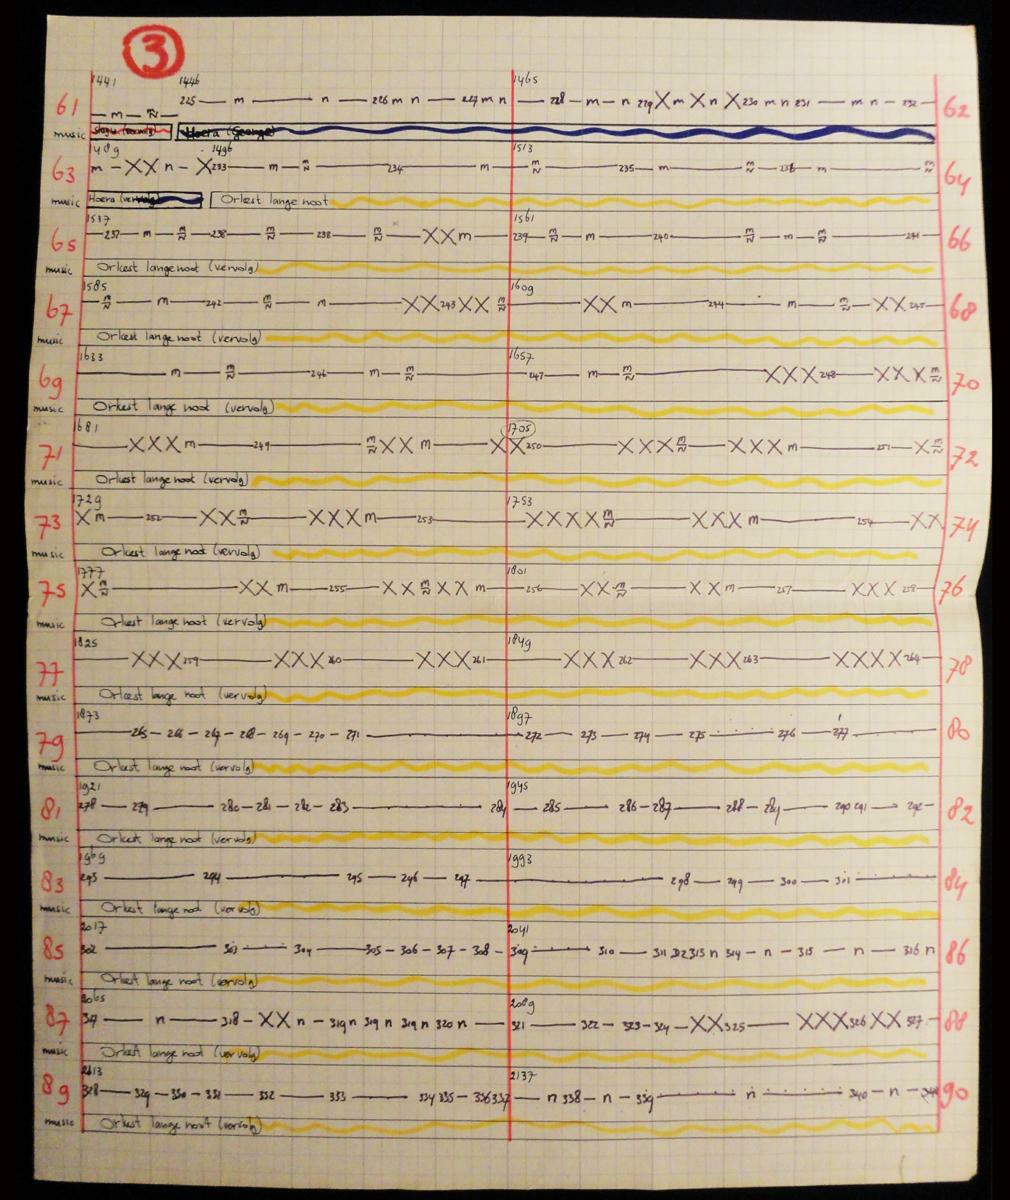 3
1441 1446 1465
61 — m — m/N — 225 — m — n — 226 m n — 227 m n — 228 — m — n 229 X m X n X 230 m n 231 — m n — 232 — 62
music Hoera (George)
1489 1496 1513
63 m — XX n — X 233 — m — m/N — 234 — m — m/N — 235 — m — m/N — m — m/N 64
music Hoera (vervolg) Orkest lange noot
1537 1561
65 — 237 — m — m/N — 238 — m/N — 238 — m/N — XX m — 239 — m/N — m — 240 — m/N — m — m/N — 241 — 66
music Orkest lange noot (vervolg)
1585 1609
67 — m/N — m — 242 — m/N — m — XX 243 XX m/N — XX m — 244 — m — m/N — XX 245 — 68
music Orkest lange noot (vervolg)
1633 1657
69 — m — m/N — 246 — m — m/N — 247 — m — m/N — XXX 248 — XXX m/N 70
music Orkest lange noot (vervolg)
1681 1705
71 — XXX m — 249 — m/N XX m — XX 250 — XXX m/N — XXX m — 251 — X m/N 72
music Orkest lange noot (vervolg)
1729 1753
73 X m — 252 — XX m/N — XXX m — 253 — XXXX m/N — XXX m — 254 — XX 74
music Orkest lange noot (vervolg)
1777 1801
75 X m/N — XX m — 255 — XX m/N XX m — 256 — XX m/N — XX m — 257 — XXX 258 — 76
music Orkest lange noot (vervolg)
1825 1849
77 — XXX 259 — XXX 260 — XXX 261 — XXX 262 — XXX 263 — XXXX 264 — 78
music Orkest lange noot (vervolg)
1873 1897
79 — 265 — 266 — 267 — 268 — 269 — 270 — 271 — 272 — 273 — 274 — 275 — 276 — 277 — 80
music Orkest lange noot (vervolg)
1921 1945
81 278 — 279 — 280 — 281 — 282 — 283 — 284 — 285 — 286 — 287 — 288 — 289 — 290 291 — 292 — 82
music Orkest lange noot (vervolg)
1969 1993
83 293 — 294 — 295 — 296 — 297 — 298 — 299 — 300 — 301 — 84
music Orkest lange noot (vervolg)
2017 2041
85 302 — 303 — 304 — 305 — 306 — 307 — 308 — 309 — 310 — 311 312 313 n 314 — n — 315 — n — 316 n 86
music Orkest lange noot (vervolg)
2065 2089
87 317 — n — 318 — XX n — 319 n 319 n 319 n 320 n — 321 — 322 — 323 — 324 — XX 325 — XXX 326 XX 327 — 88
music Orkest lange noot (vervolg)
2113 2137
89 328 — 329 — 330 — 331 — 332 — 333 — 334 335 — 336 337 — n 338 — n — 339 — n — 340 — n — 341 90
music Orkest lange noot (vervolg)